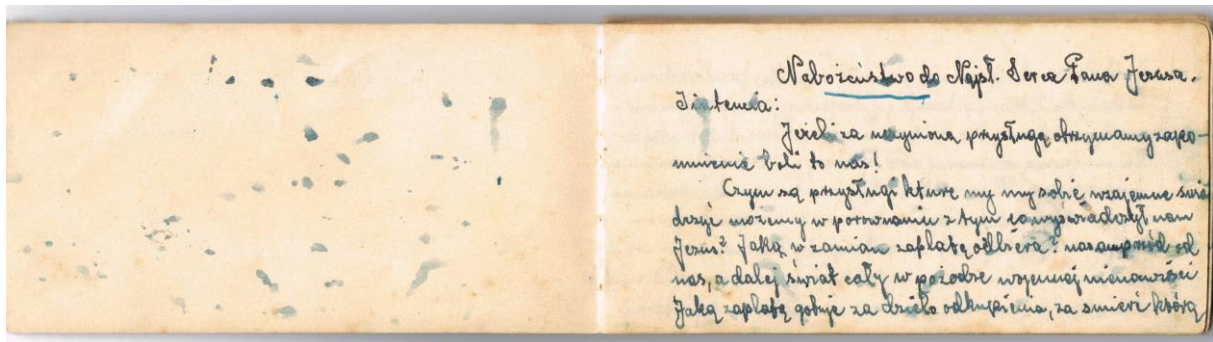 Nabożeństwo do Najsł. Serca Pana Jezusa.
Jintencia:
Jeżeli za uczynioną przysługę otrzymamy zapo-
mnienie boli to nas!
Czym są przysługi kture my my sobie wzajemne świa
dczyć możemy w porownaniu z tym co wyswiadczył nam
Jezus? Jaką w zamian zapłatę odbiera? nasamprzód od
nas, a dalej świat cały w pożodze wojennej nienawiści
Jaką zapłatę gotuje za dzieło odkupienia, za smierć którą